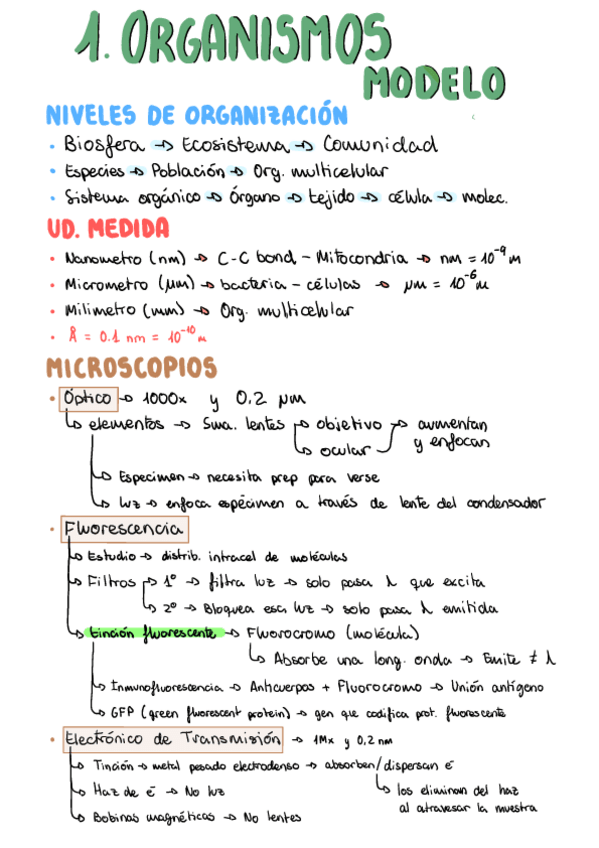 1. ORGANISMOS
MODELO
NIVELES DE ORGANIZACIÓN
• Biosfera → Ecosistema → Comunidad
• Especies → Población → Org. multicelular
• Sistema orgánico → Órgano → tejido → célula → molec.
UD. MEDIDA
• Nanometro (nm) → C-C bond - Mitocondria → nm = 10⁻⁹ m
• Micrometro (μm) → bacteria - células → μm = 10⁻⁶ m
• Milimetro (mm) → Org. multicelular
• Å = 0.1 nm = 10⁻¹⁰ m
MICROSCOPIOS
• Óptico → 1000x y 0.2 μm
↳ elementos → Sma. lentes → objetivo → aumentan
↳ ocular y enfocan
↳ Especimen → necesita prep para verse
↳ luz → enfoca espécimen a través de lente del condensador
• Fluorescencia
↳ Estudio → distrib. intracel de moléculas
↳ Filtros → 1º → filtra luz → solo pasa λ que excita
↳ 2º → Bloquea esa luz → solo pasa λ emitida
↳ tinción fluorescente → Fluorocromo (molécula)
↳ Absorbe una long. onda → Emite ≠ λ
↳ Inmunofluorescencia → Anticuerpos + Fluorocromo → Unión antígeno
↳ GFP (green fluorescent protein) → gen que codifica prot. fluorescente
• Electrónico de Transmisión → 1Mx y 0,2 nm
↳ Tinción → metal pesado electrodenso → absorben/dispersan e⁻
↳ Haz de e⁻ → No luz ↳ los eliminan del haz
al atravesar la muestra
↳ Bobinas magnéticas → No lentes